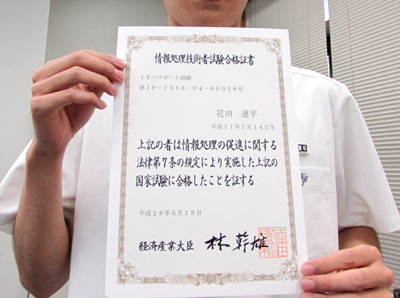 情報処理技術者試験合格証書
ITパスポート試験
第IP-2016-04-00026号
花田 遼平
平成11年7月14日生
上記の者は情報処理の促進に関する
法律第7条の規定により実施した上記の
国家試験に合格したことを証する
平成28年5月18日
経済産業大臣 林幹雄